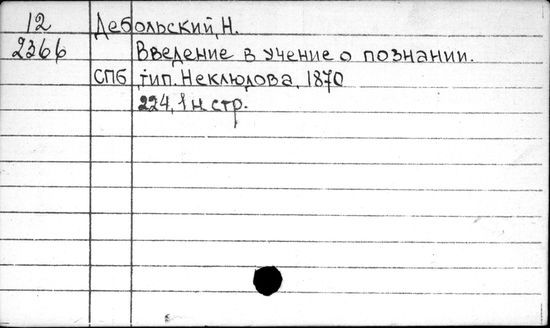 12 Дебольский, Н.
2366 Введение в учение о познании.
СПб, тип. Неклюдова, 1870
224, 1 н стр.